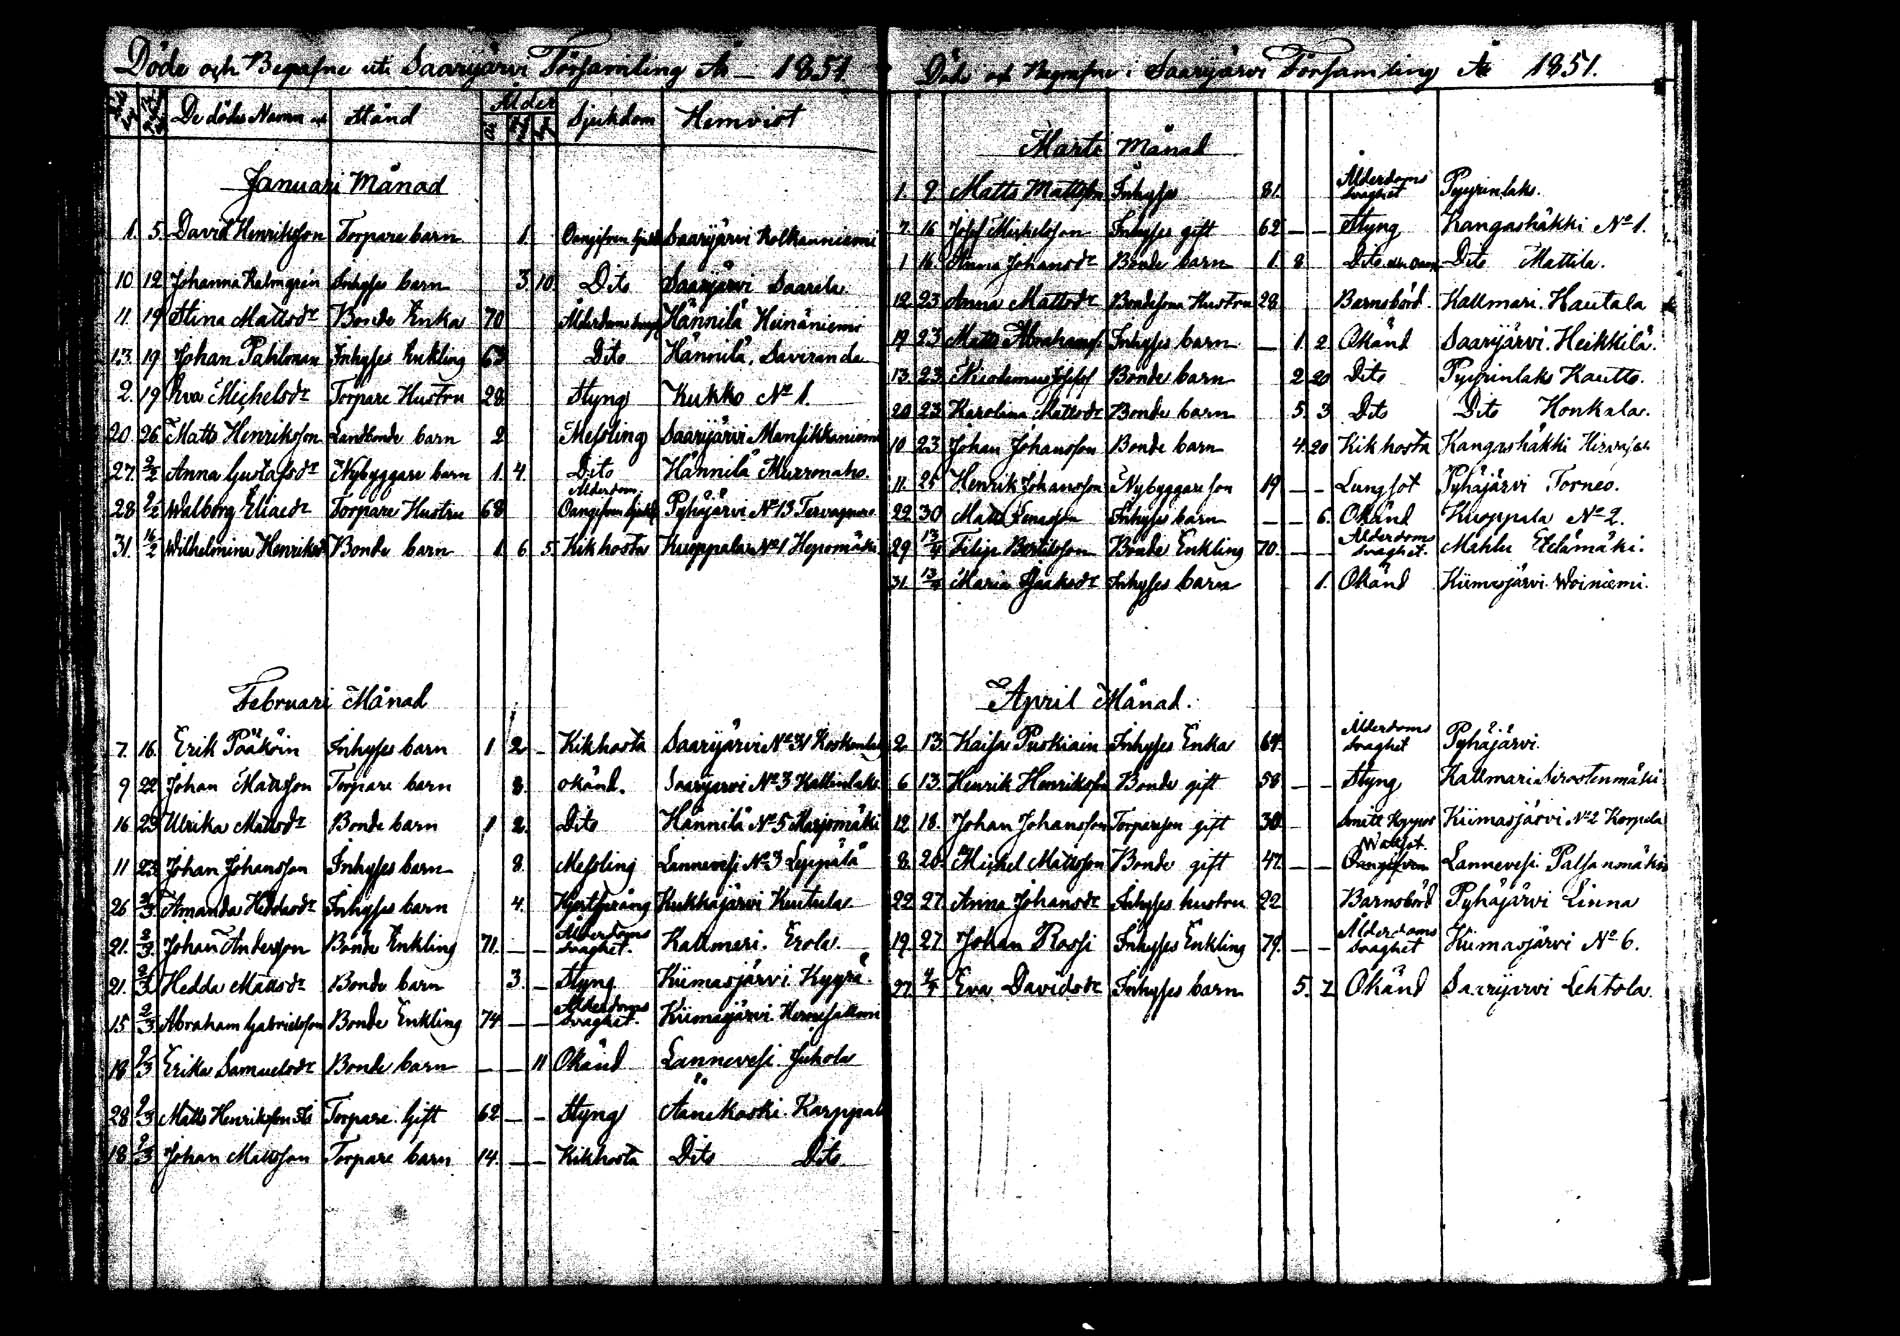 Döde och Begrafne uti Saarijärvi Församling År 1851.
De dödas Namn och Stånd Ålder Sjukdom Hemvist
År M D
Januari Månad
1. 5. David Henriksson Torpare barn 1. Oangifven Saarijärvi Kolkanniemi
10 12 Johanna Kalmgrén Inhyses barn 3. 10 Dito Saarijärvi Saarela
11. 19 Stina Mattsdr Bonde Enka 70 Hännilä Heinäniemi
13. 19 Johan Pahlman Inhyses Enkling 63 Dito Hännilä, Saviranda
2. 19 Eva Michelsdr Torpare Hustru 28 Styng Kukko No 1.
20 26 Matts Henriksson Landbonde barn 2 Messling Saarijärvi
27. 2/2 Anna Gustafsdr Nybyggare barn 1. 4. Dito Hännilä Murronaho.
28 2/2 Walborg Eliaedr Torpare Hustru 68 Ålderdom Oangifven Pyhäjärvi No 13
31. 16/2 Wilhelmina Henriksdr Bonde barn 1 6. 5. Kikhosta Kuoppala No 1 Hepomäki
Februari Månad
7. 16. Erik Pääköin Inhyses barn 1 2 – Kikhosta Saarijärvi No 31
9 22 Johan Matsson Torpare barn 8. okänd. Saarijärvi No 3
16 23 Ulrika Mattsdr Bonde barn 1 2. Dito Hännilä No 5 Marjomäki
11 23 Johan Johansson Inhyses barn 8. Messling Lannevesi No 3 Leppälä
26 2/3 Amanda Heddasdr Inhyses barn 4. Kukkajärvi Kuutula
21. 2/3 Johan Andersson Bonde Enkling 71. – – Ålderdoms svaghet. Kallmari. Erola.
21. 2/3 Hedda Mattsdr Bonde barn 3. – Styng Kiimasjärvi. Kyyrä.
15 2/3 Abraham Gabrielsson Bonde Enkling 74 – – Ålderdoms svaghet. Kiimasjärvi
18 9/3 Erika Samuelsdr Bonde barn – – 11 Okänd Lannevesi Juhola
28 9/3 Matts Henriksson Torpare. Gift 62 – – Styng Äänekoski. Karppala
18 9/3 Johan Mattsson Torpare barn 14. – – Kikhosta Dito Dito
Döde och Begrafne i Saarijärvi Församling År 1851.
Marti Månad
1. 9 Matts Mattsson Inhyses 81. Ålderdoms svaghet Pyyrinlaks.
7. 16 Josef Michelsson Inhyses gift 62 – – Styng Kangashäkki No 1.
1 16. Anna Johansdr Bonde barn 1. 8 Dito Dito Mattila.
12. 23 Anna Mattsdr Bondesons Hustru 28 Barnsbörd Kallmari. Hautala
19 23 Matts Abrahamss. Inhyses barn – 1. 2. Okänd Saarijärvi. Heikkilä.
13. 23. Nicodemus Josefss Bonde barn 2 20 Dito Pyyrinlaks Kautto.
20 23 Karolina Mattsdr Bonde barn 5. 3 Dito Dito Honkala.
10 23 Johan Johansson Bonde barn 4. 20 Kikhosta Kangashäkki
11. 25 Henrik Johansson Nybyggare son 19 – – Lungsot Pyhäjärvi Torneo.
22 30 Matts Inhyses barn – – 6. Okänd Kuoppala No 2.
29 13/4 Filip Bertilsson Bonde Enkling 70. – – Ålderdoms svaghet. Mahlu Etelämäki.
31. 13/4 Maria Isaksdr Inhyses barn 1. Okänd Kiimasjärvi. Woiniemi.
April Månad.
2 13. Kaisa Puskiain Inhyses Enka 64. Ålderdoms svaghet Pyhäjärvi.
6 13. Henrik Henriksson Bonde gift 58 – – Styng Kallmari
12 18. Johan Johansson Torpareson gift 30 Kiimasjärvi No 2 Korpela
8. 20. Michel Mattsson Bonde gift 47. – – Wattsot. Oangifven Lannevesi
22 27. Anna Johansdr Inhyses hustru 22 Barnsbörd Pyhäjärvi Linna
19. 27. Johan Rossi Inhyses Enkling 79. – – Ålderdoms svaghet Kiimasjärvi No 6.
27. 4/5 Eva Davidsdr Inhyses barn 5. 2 Okänd Saarijärvi Lehtola.